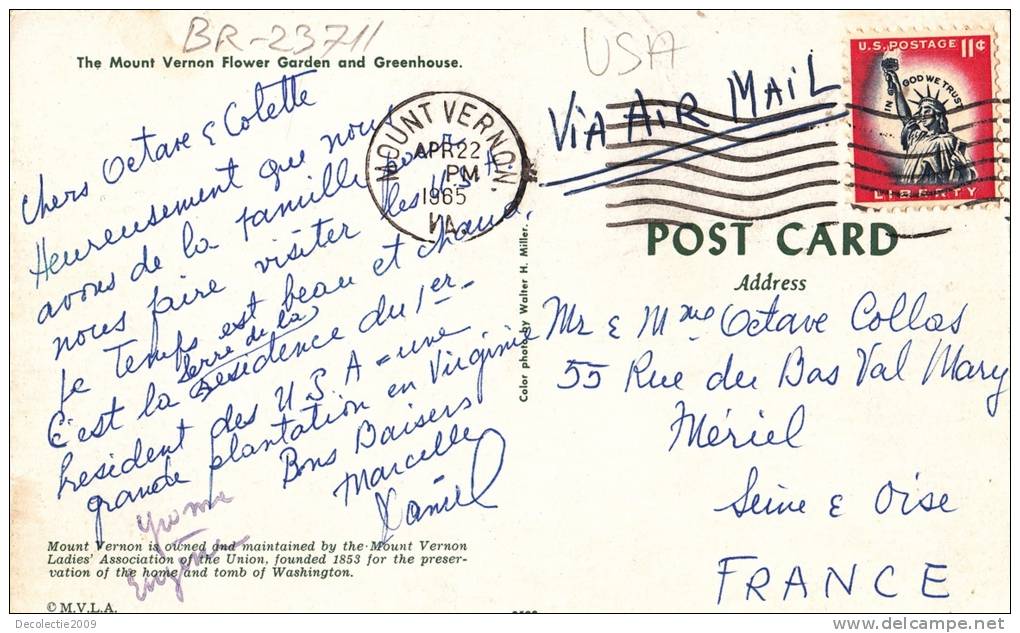 BR-23711
USA
The Mount Vernon Flower Garden and Greenhouse.
Chers Octave & Colette
Heureusement que nous
avons de la famille pour
nous faire visiter les U.S.A.
le Temps est beau et chaud.
serre de la
C'est la Résidence du 1er
President des U.S.A = une
grande plantation en Virginie
Bons Baisers
Marcelle
Daniel
Yvonne
Eugène
Mount Vernon is owned and maintained by the Mount Vernon
Ladies' Association of the Union, founded 1853 for the preser-
vation of the home and tomb of Washington.
© M.V.L.A.
MOUNT VERNON.
APR 22
PM
1965
VA.
Color photo by Walter H. Miller.
VIA AIR MAIL
U.S. POSTAGE 11¢
IN GOD WE TRUST
LIBERTY
POST CARD
Address
Mr & Mme Octave Collas
55 Rue du Bas Val Mary
Mériel
Seine & Oise
FRANCE
Decolectie2009
delcampe.net